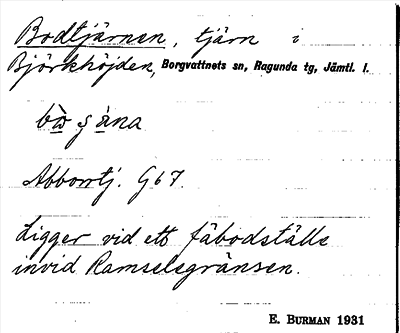 Bodtjärnen, tjärn i
Björkhöjden, Borgvattnets sn, Ragunda tg, Jämtl. l.
Abborrtj. G67.
Ligger vid ett fäbodställe
invid Ramselegränsen.
E. BURMAN 1931